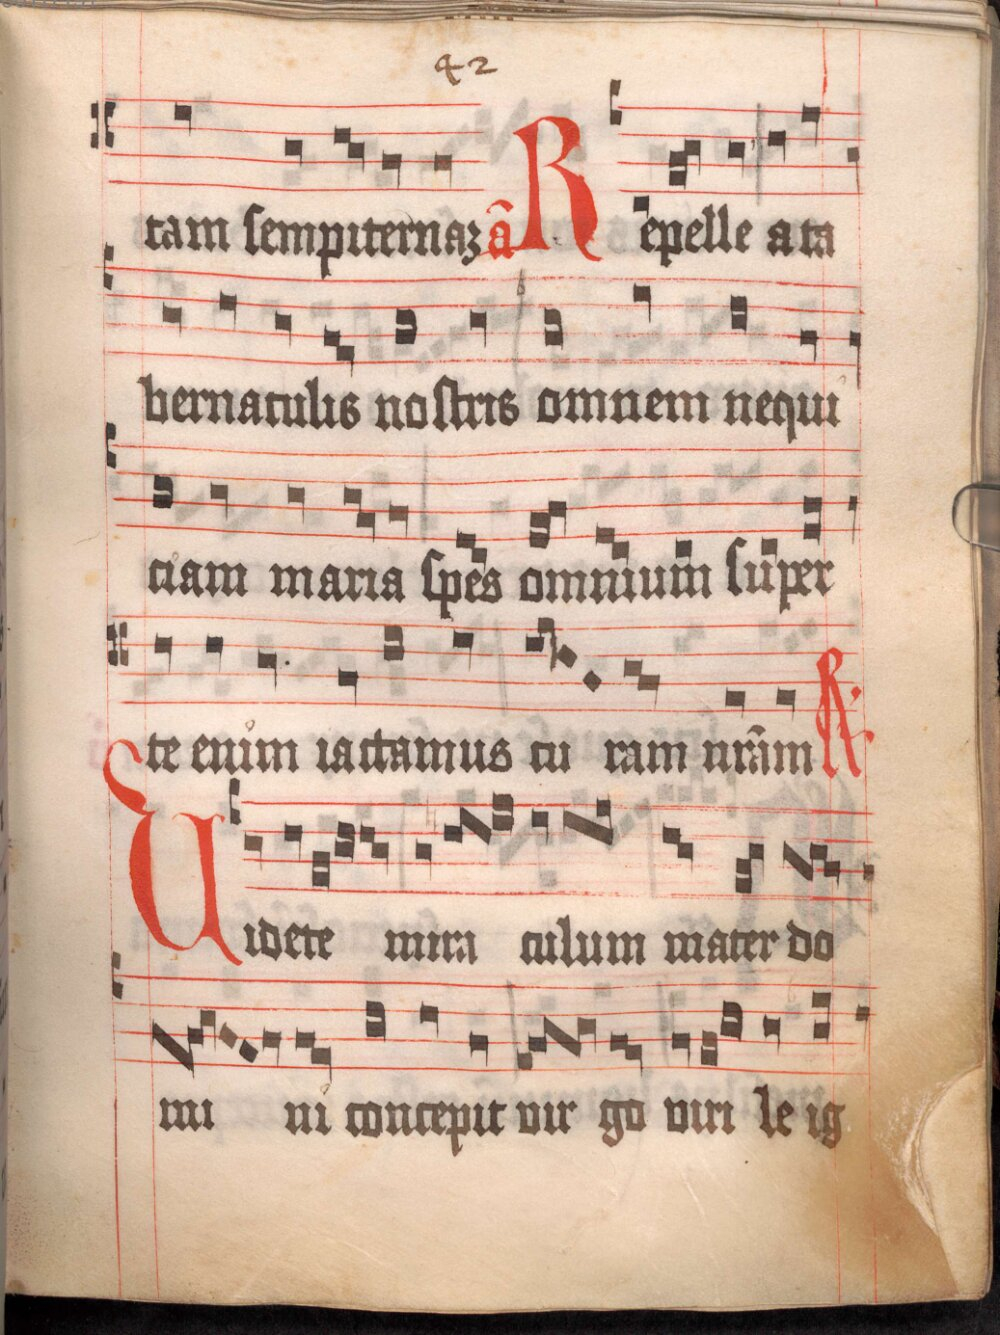 42
tam sempiternaʒ ã Repelle a ta
bernaculis nostris omnem nequi
ciam maria spes omnium super
te enim iactamus cu ram nrãm R̷
Uidete mira culum mater do
mi ni concepit vir go viri le ig